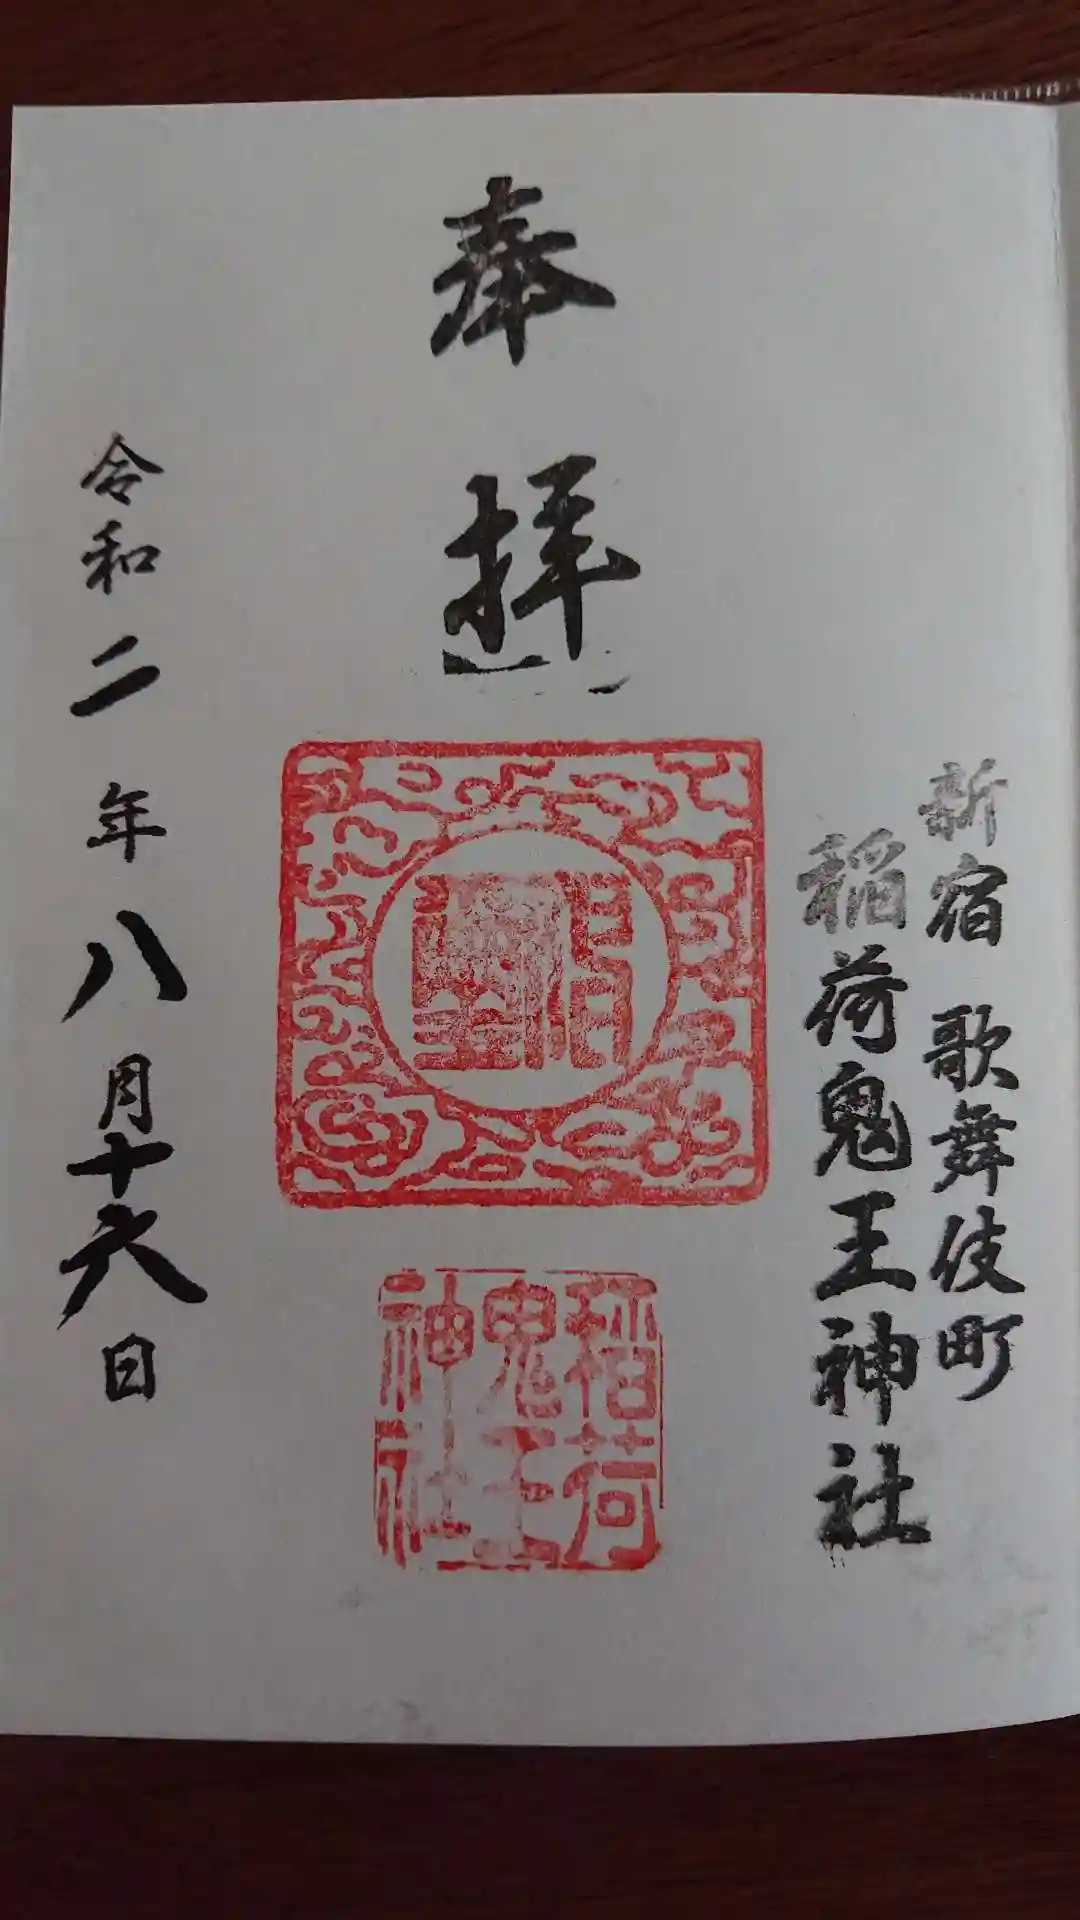 新宿 歌舞伎町
稲荷鬼王神社
奉拝
稲荷
鬼王
神社
令和二年八月十六日